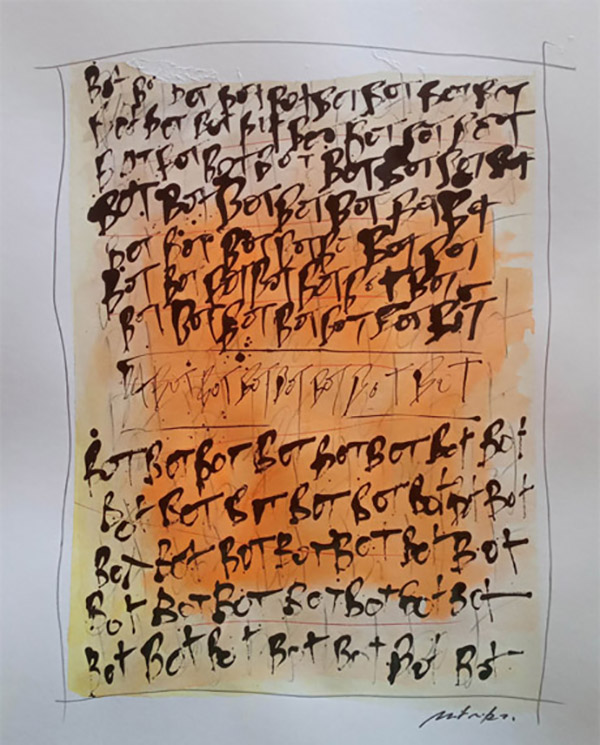 Bot Bot Bot Bot Bot Bot Bot Bot Bot
Bot Bot Bot Bot Bot Bot Bot Bot
Bot Bot Bot Bot Bot Bot Bot Bot
Bot Bot Bot Bot Bot Bot Bot
Bot Bot Bot Bot Bo Bot Bot
Bot Bot Bot Bot Bot Bot Bot
Bot Bot Bot Bot Bot Bot Bot
Bot Bot Bot Bot Bot Bot Bot Bot
Bot Bot Bot Bot Bot Bot Bot Bot
Bot Bot Bot Bot Bot Bot Bot Bot
Bot Bot Bot Bot Bot Bot Bot
Bot Bot Bot Bot Bot Bot Bot
Bot Bot Bot Bot Bot Bot Bot